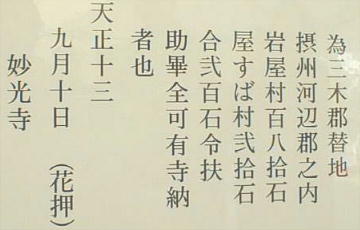 為三木郡替地
摂州河辺郡之内
岩屋村百八拾石
屋すば村弐拾石
合弐百石令扶
助畢全可有寺納
者也
天正十三
九月十日　（花押）
妙光寺